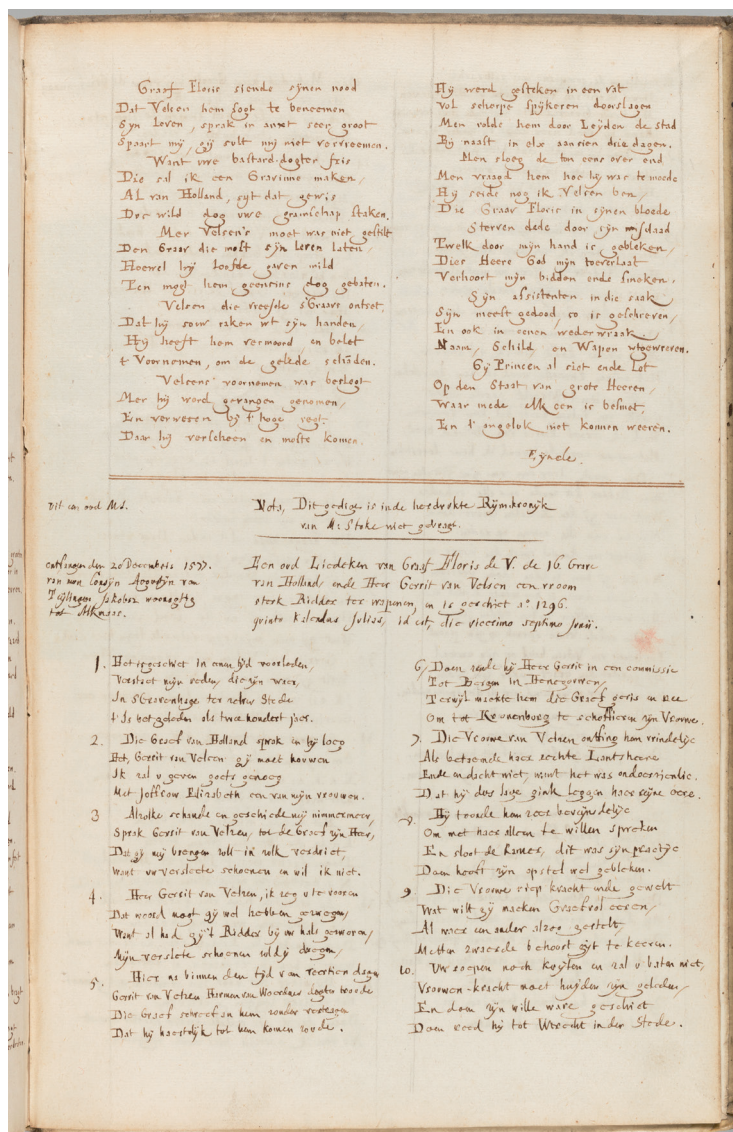 Graaf Floris siende sijnen nood
Dat Velsen hem sogt te beneemen
Syn leven, sprak in anxt seer groot
Spaart mij, gij sult mij niet vervreemen.
Want uwe bastard-dogter fris
Die sal ik een Gravinne maken,
Al van Holland, syt dat gewis
Doe wild dog uwe gramschap staken.
Mer Velsen's moet was niet gestilt
Den Graav die most sijn leven laten,
Hoewel hij loofde gaven mild
Ten mogt hem geensins dog gebaten.
Velsen die vreesde s'Graavs ontset,
Dat hij souw raken wt sijn handen,
Hij heeft hem vermoord, en belet
t Voornemen, om de geleede schanden.
Velsens voornemen was beslogt
Mer hij word gevangen genomen,
En verwesen bij t' hoge regt
Daar hij verscheen en moste komen.
Hij werd gesteken in een vat
vol scherpe spijkeren doorslagen
Men rolde hem door Leyden de stad
Bij naast in elx aansien drie dagen.
Men sloeg de ton eens over end
Men vraagd hem hoe hij was te moede
Hij seide nog ik Velsen ben,
Die Graav Floris in sijnen bloede
Sterven dede door sijn misdaad
Twelk door mijn hand is gebleken,
Dies Heere God mijn toeverlaat
Verhoort mijn bidden ende smeken.
Sijn assistenten in die saak
Sijn meest gedood, so is geschreven,
En ook in eenen wederwraak
Naam, Schild en Wapen
Gij Princen al siet ende let
Op den Staat van grote Heeren,
Waar mede elk een is besmet,
En t' ongeluk niet konnen weeren.
Eynde.
Uit een oud Ms.
Nota, Dit gedigt is inde herdrukte Rijmkronijk
van M: Stoke niet gevoegt.
ontfangen den 20 Decembris 1577.
van mon Cousijn Augustijn van
Teijlingen Jakobsz woonagtig
tot Alkmaar.
Een oud Liedeken van Graaf Floris de V. de 16. Grave
van Holland ende Heer Gerrit van Velsen een vroom
sterk Ridder ter wapenen, en is geschiet aº 1296.
quinto kalendas Julias, id est, die vicesimo septimo Junij.
1. Het is geschiet in enen tijd voorleden,
Verstaet mijn reden, die zijn waer,
In s'Gravenhage ter selver Stede
t' Is betgeleden als twee hondert jaer.
2. Die Graef van Holland sprak en hij loeg
Her, Gerrit van Velsen gij moet houwen
Ik zal u geven goets genoeg
Met Joffrow Elizabeth een van mijn vrouwen.
3 Alzulke schande en geschiede mij nimmermeer,
Sprak Gerrit van Velzen, tot de Graef zijn Heer,
Dat gij mij brengen zoll in zulk verdriet,
Want uw versleete schoenen en wil ik niet.
4. Heer Gerrit van Velzen, ik zeg u te vooren
Dat woord moogt gij wel hebben gezwegen,
Want al had gij't Ridder bij uw hals gezworen,
Mijn verslete schoenen zold ij dragen,
5. Hier na binnen den tijd van veertien dagen
Gerrit van Velzen Herman van Woerdens dogter troude
Die Graef schreef an hem zonder vertragen
Dat hij haestelijk tot hem komen zoude.
6, Doen zende hij Heer Gerrit in een commissie
Tot Bergen in Henegouwen,
Terwijl maekte hem die Graef geris en ree
Om tot Kronenborg te schoffieren zijn Vrouwe.
7. Die Vrouwe van Velsen ontfing hem vrindelijc
Als betaemde haer rechte Lantsheere
Ende en dacht niet, want het was ondoersienlic.
Dat hij dus lage zink leggen haer reyne eere.
8. Hij troude hem zeer
Om met haer alleen te willen spreken
En sloot de kamer, dit was sijn practijc
Doen heeft zijn opstel wel gebleken.
9. Die Vrouwe riep kracht ende gewelt
Wat wilt gij maeken Graef vol eeren,
Al waer een ander alzoo gestelt,
Metten zwaerde behoort gijt te keeren.
10. Uw roepen noch krijten en zal u baten niet,
Vrouwen-kracht moet huyden zijn geleden,
En doen zijn wille ware geschiet
Doen reed hij tot Utrecht in der Stede.